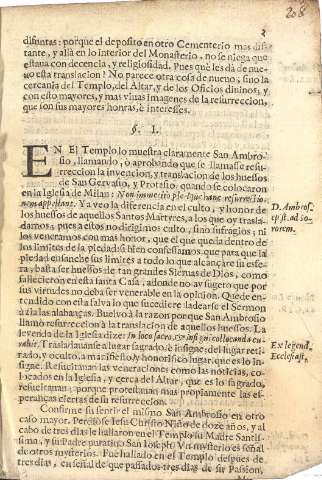 208
2
disuntas: porque el deposito en otro Cementerio mas dis-
tante, y allà en lo Interior del Monasterio, no se niega que
estaua con decencia, y religiosidad. Pues què les dà de nue-
uo esta translacion? No parece otra cosa de nueuo, sino la
cercania del Templo, del Altar, y de los Oficios diuinos; y
con esto mayores, y mas viuas Imagenes de la resurreccion,
que son sus mayores honras, è intereses.
§. I.
EN El Templo lo muestra claramente San Ambro-
sio, llamando, ò aprobando que se llamasse resu-
rreccion la inuencion, y translacion de los huessos
de San Geruasio, y Protasio, quando se colocaron
en la Iglesia de Milan: Non immeritò plerique hanc resurrectio-
nem appellant. Ya veo la diferencia en el culto, y honor de
los huessos de aquellos Santos Martyres, a los que oy trasla-
damos; pues a estos no dirigimos culto, sino sufragios; ni
los veneramos con mas honor, que el que queda dentro de
los limites de la piedad: si bien confiessamos, que para que la
piedad ensanche sus limites a todo lo que alcançare su esfe-
ra, basta ser huessos de tan grandes Sieruas de Dios, como
fallecieron en esta santa Casa, adonde no ay sugeto que por
sus virtudes no deba ser venerable en la opinion. Quede en-
tendido con esta salva lo que sucediere ladearse el Sermon
àzia las alabanças. Bueluo à la razon porque San Ambrosio
llamò resurreccion à la translacion de aquellos huessos. La
leyenda de la Iglesia dize:
uabit. Trasladaronse a lugar sagrado, è insigne: del lugar reti-
rado, y oculto, a manifiesto, y honorifico lugar, que es lo in-
signe. Resucitauan las veneraciones como las noticias, co-
locados en la Iglesia, y cerca del Altar, que es lo sagrado,
resucitauan; porque protestauan mas propiamente las es-
peranças ciertas de su resurreccion.
Confirme su sentir el mismo San Ambrosio en otro
caso mayor. Perdiòse Iesu Christo Niño de doze años, y al
cabo de tres dias le hallaron en el Templo su Madre Santis-
sima, y su Padre putatiuo San Ioseph. Vn mysterio es señal
de otros mysterios. Fue hallado en el Templo despues de
tres dias, en señal de que passados tres dias de su Passion,
D. Ambros.
epist. ad so-
rorem.
Ex legend.
Ecclesiast.